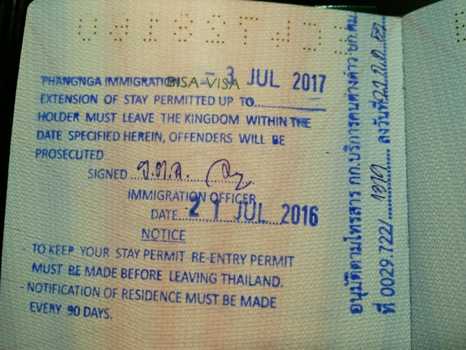 PHANGNGA IMMIGRATION VISA-VISA - 3 JUL 2017
EXTENSION OF STAY PERMITTED UP TO
HOLDER MUST LEAVE THE KINGDOM WITHIN THE
DATE SPECIFIED HEREIN, OFFENDERS WILL BE
PROSECUTED
SIGNED
IMMIGRATION OFFICER
DATE 21 JUL 2016
NOTICE
- TO KEEP YOUR STAY PERMIT RE-ENTRY PERMIT
MUST BE MADE BEFORE LEAVING THAILAND.
- NOTIFICATION OF RESIDENCE MUST BE MADE
EVERY 90 DAYS.
อนุมัติตามโทรสาร กก.บริการคนต่างด้าว บก.ตม.
ที่ 0029.722/ ลงวันที่